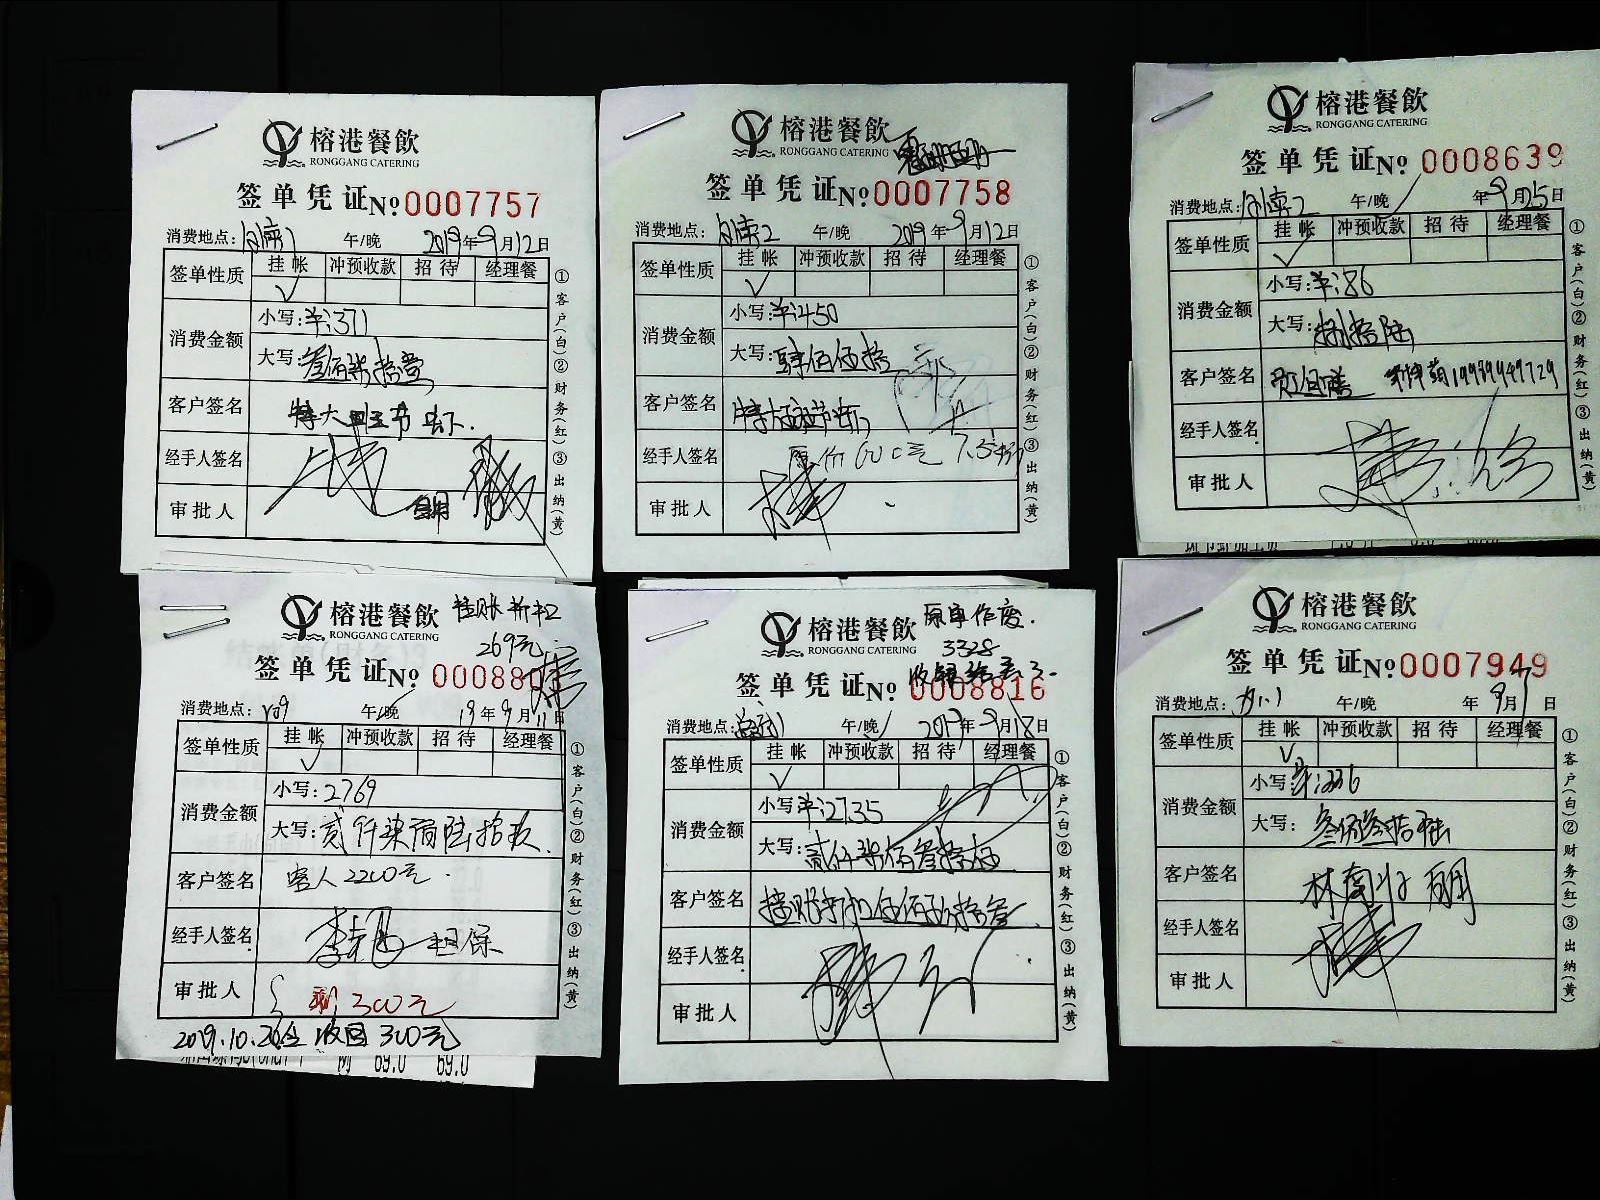 榕港餐飲
RONGGANG CATERING
签单凭证No 0007757
消费地点: 午/晚 2019年9月12日
签单性质 挂帐 冲预收款 招待 经理餐
√
消费金额 小写:羊:371
大写:叁佰柒拾壹
客户签名 特大
经手人签名
审批人
①客户(白)②财务(红)③出纳(黄)
榕港餐飲
RONGGANG CATERING
签单凭证No 0007758
消费地点: 午/晚 2019年9月12日
签单性质 挂帐 冲预收款 招待 经理餐
√
消费金额 小写:羊:450
大写:肆佰伍拾
客户签名
经手人签名 原价600元 7.5折
审批人
①客户(白)②财务(红)③出纳(黄)
榕港餐飲
RONGGANG CATERING
签单凭证No 0008639
消费地点: 午/晚 年9月25日
签单性质 挂帐 冲预收款 招待 经理餐
√
消费金额 小写:羊:86
大写:捌拾陆
客户签名
经手人签名
审批人
①客户(白)②财务(红)③出纳(黄)
榕港餐飲 挂账折扣
RONGGANG CATERING 269元
签单凭证No 00088
消费地点: 午/晚 19年9月11日
签单性质 挂帐 冲预收款 招待 经理餐
√
消费金额 小写:2769
大写:贰仟柒佰陆拾玖
客户签名 客人2200元
经手人签名 担保
审批人 300元
2019.10.26 收回300元
69.0 69.0
①客户(白)②财务(红)③出纳(黄)
榕港餐飲 原单作废.
RONGGANG CATERING 3328
签单凭证No 0008816
消费地点: 午/晚 2019年9月18日
签单性质 挂帐 冲预收款 招待 经理餐
√
消费金额 小写:羊:2735
大写:贰仟柒佰叁拾伍
客户签名 挂账折扣伍佰玖拾叁
经手人签名
审批人
①客户(白)②财务(红)③出纳(黄)
榕港餐飲
RONGGANG CATERING
签单凭证No 0007949
消费地点: 午/晚 年9月7日
签单性质 挂帐 冲预收款 招待 经理餐
√
消费金额 小写:羊:336
大写:叁佰叁拾陆
客户签名
经手人签名
审批人
①客户(白)②财务(红)③出纳(黄)